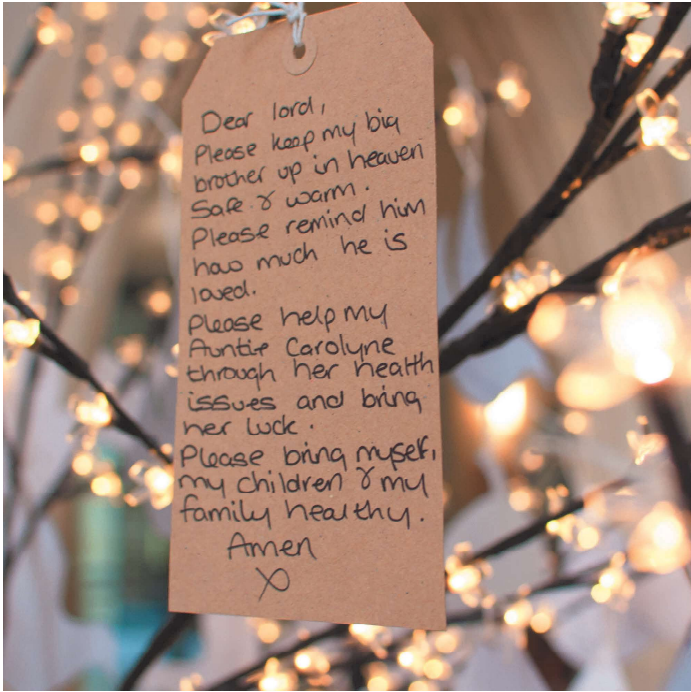 Dear lord,
Please keep my big
brother up in heaven
Safe & warm.
Please remind him
how much he is
loved.
Please help my
Auntie Carolyne
through her health
issues and bring
her luck.
Please bring myself,
my children & my
family healthy.
Amen
X